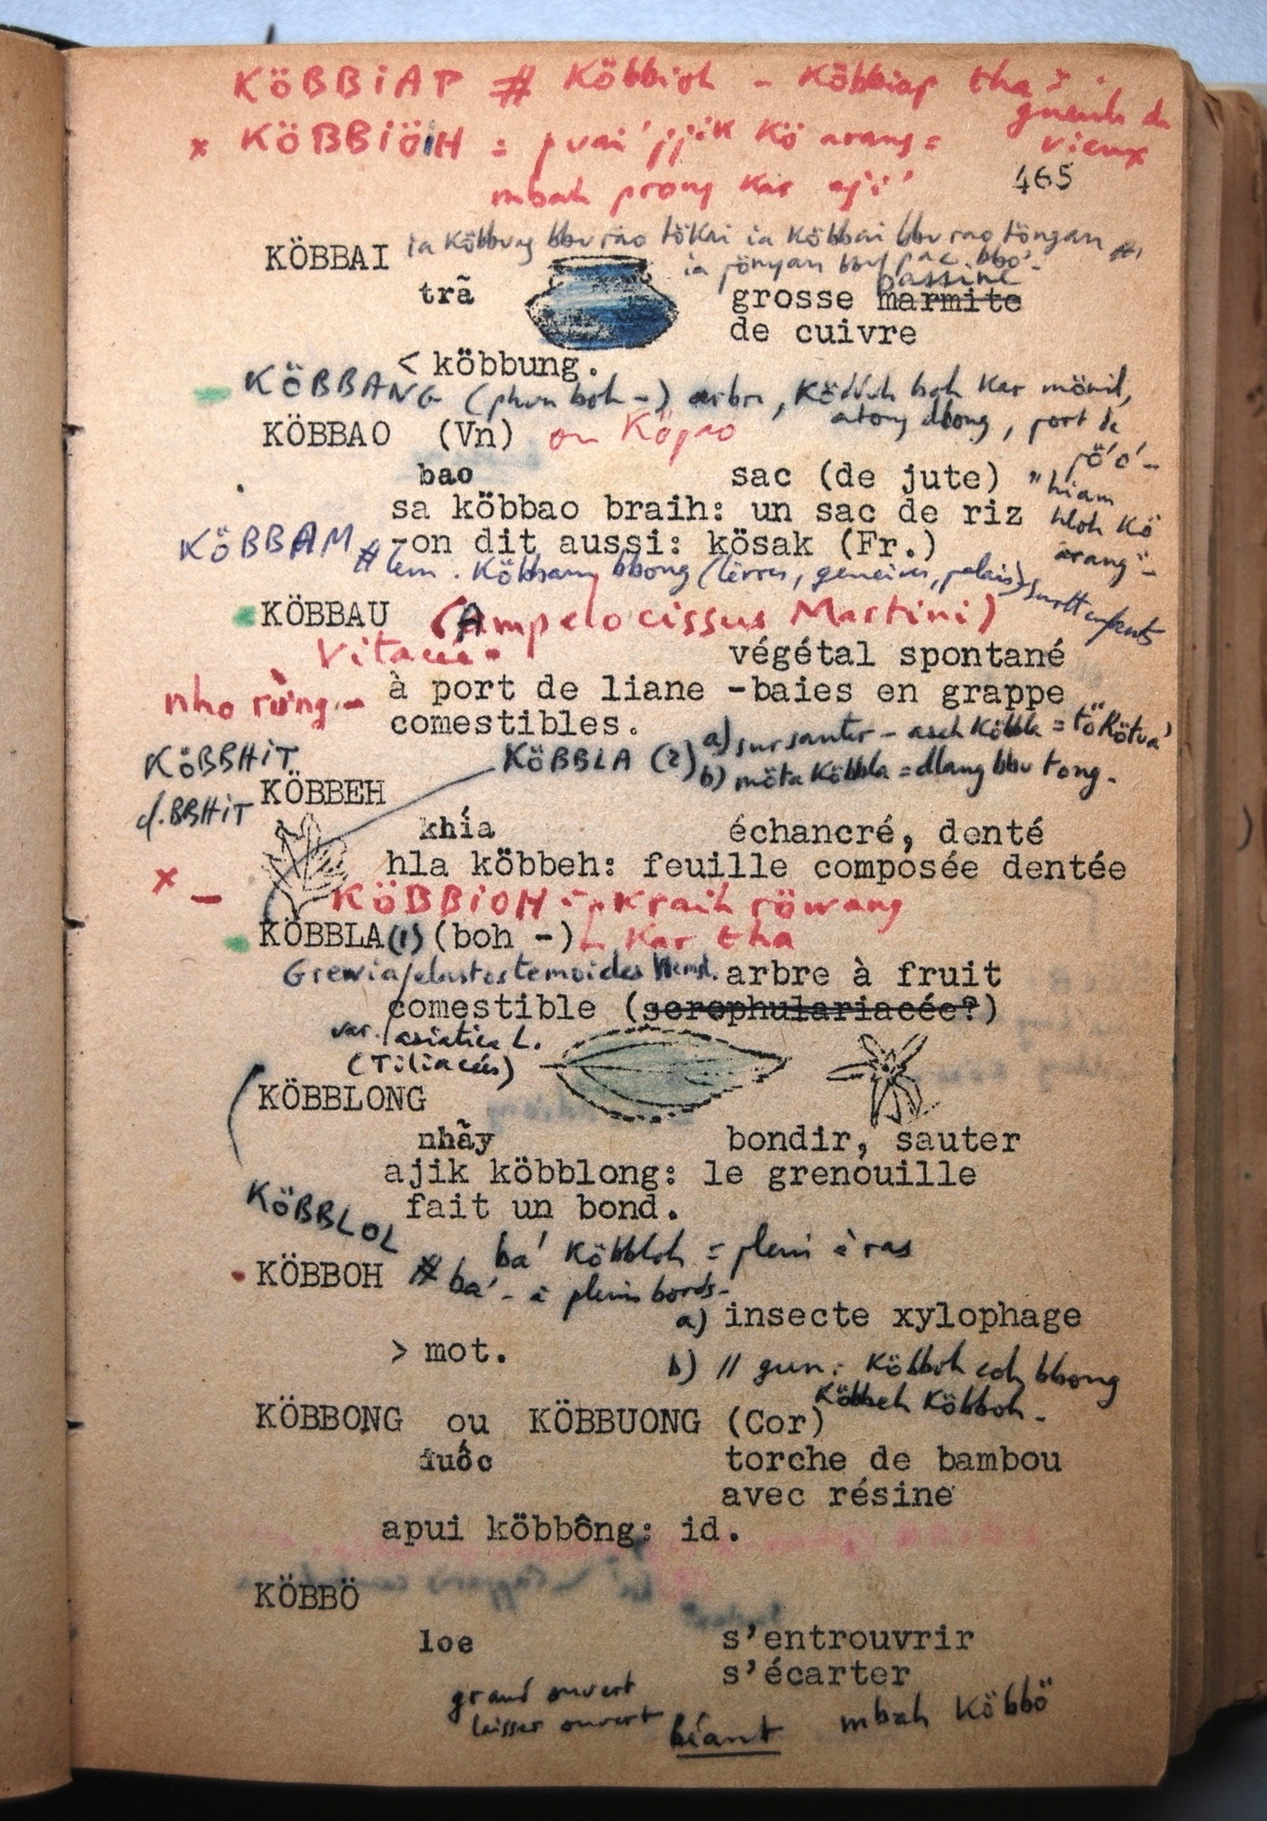 KÖBBiAP # Köbbioh - Köbbiap tha
gueule de
x KÖBBiÖiH = jjik Kö arang =
vieux
mbah prong Kar
465
KÖBBAI
ia Köbbung bbu rao tökai ia Köbbai bbu rao töngan
trã
bassine
grosse marmite
de cuivre
< köbbung.
KÖBBANG (phun boh -) arbre, boh Kar mönil,
KÖBBAO (Vn) ou Köpao
atong dbong, port de
bao sac (de jute)
"hiam
sa köbbao braih: un sac de riz
hloh Kö
KÖBBAM
-on dit aussi: kösak (Fr.)
arang"-
# lem. Köbbam bbong (lèvres, gencives, palais) surtt enfants
KÖBBAU (Ampelocissus Martini)
Vitacée.
végétal spontané
nho rừng.-
à port de liane -baies en grappe
comestibles.
KÖBBHiT
KÖBBLA (2) a) sursauter - asch Köbbla =
b) möta Köbbla = dlang bbu tong.
d. BBHiT
KÖBBEH
khía échancré, denté
hla köbbeh: feuille composée dentée
x - KÖBBiOH = pkraih röwang
KÖBBLA (1) (boh -) Kar tha
Grewia elastostemoides Hemsl. arbre à fruit
comestible (scrophulariacée?)
var. asiatica L.
(Tiliacées)
KÖBBLONG
nhãy bondir, sauter
ajik köbblong: le grenouille
fait un bond.
KÖBBLOL
ba' Köbbloh = plein à ras
KÖBBOH # ba' - à pleins bords-
a) insecte xylophage
> mot.
b) // gun: Köbboh coh bbong
Köbbeh Köbboh.
KÖBBONG ou KÖBBUONG (Cor)
đuốc torche de bambou
avec résine
apui köbbông: id.
KÖBBÖ
loe s'entrouvrir
s'écarter
grand ouvert
laisser ouvert
béant
mbah Köbbö